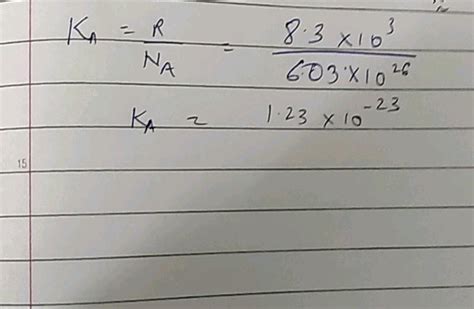 K_A = R / N_A = 8.3 × 10³ / 6.03 × 10²⁶
K_A = 1.23 × 10⁻²³
15